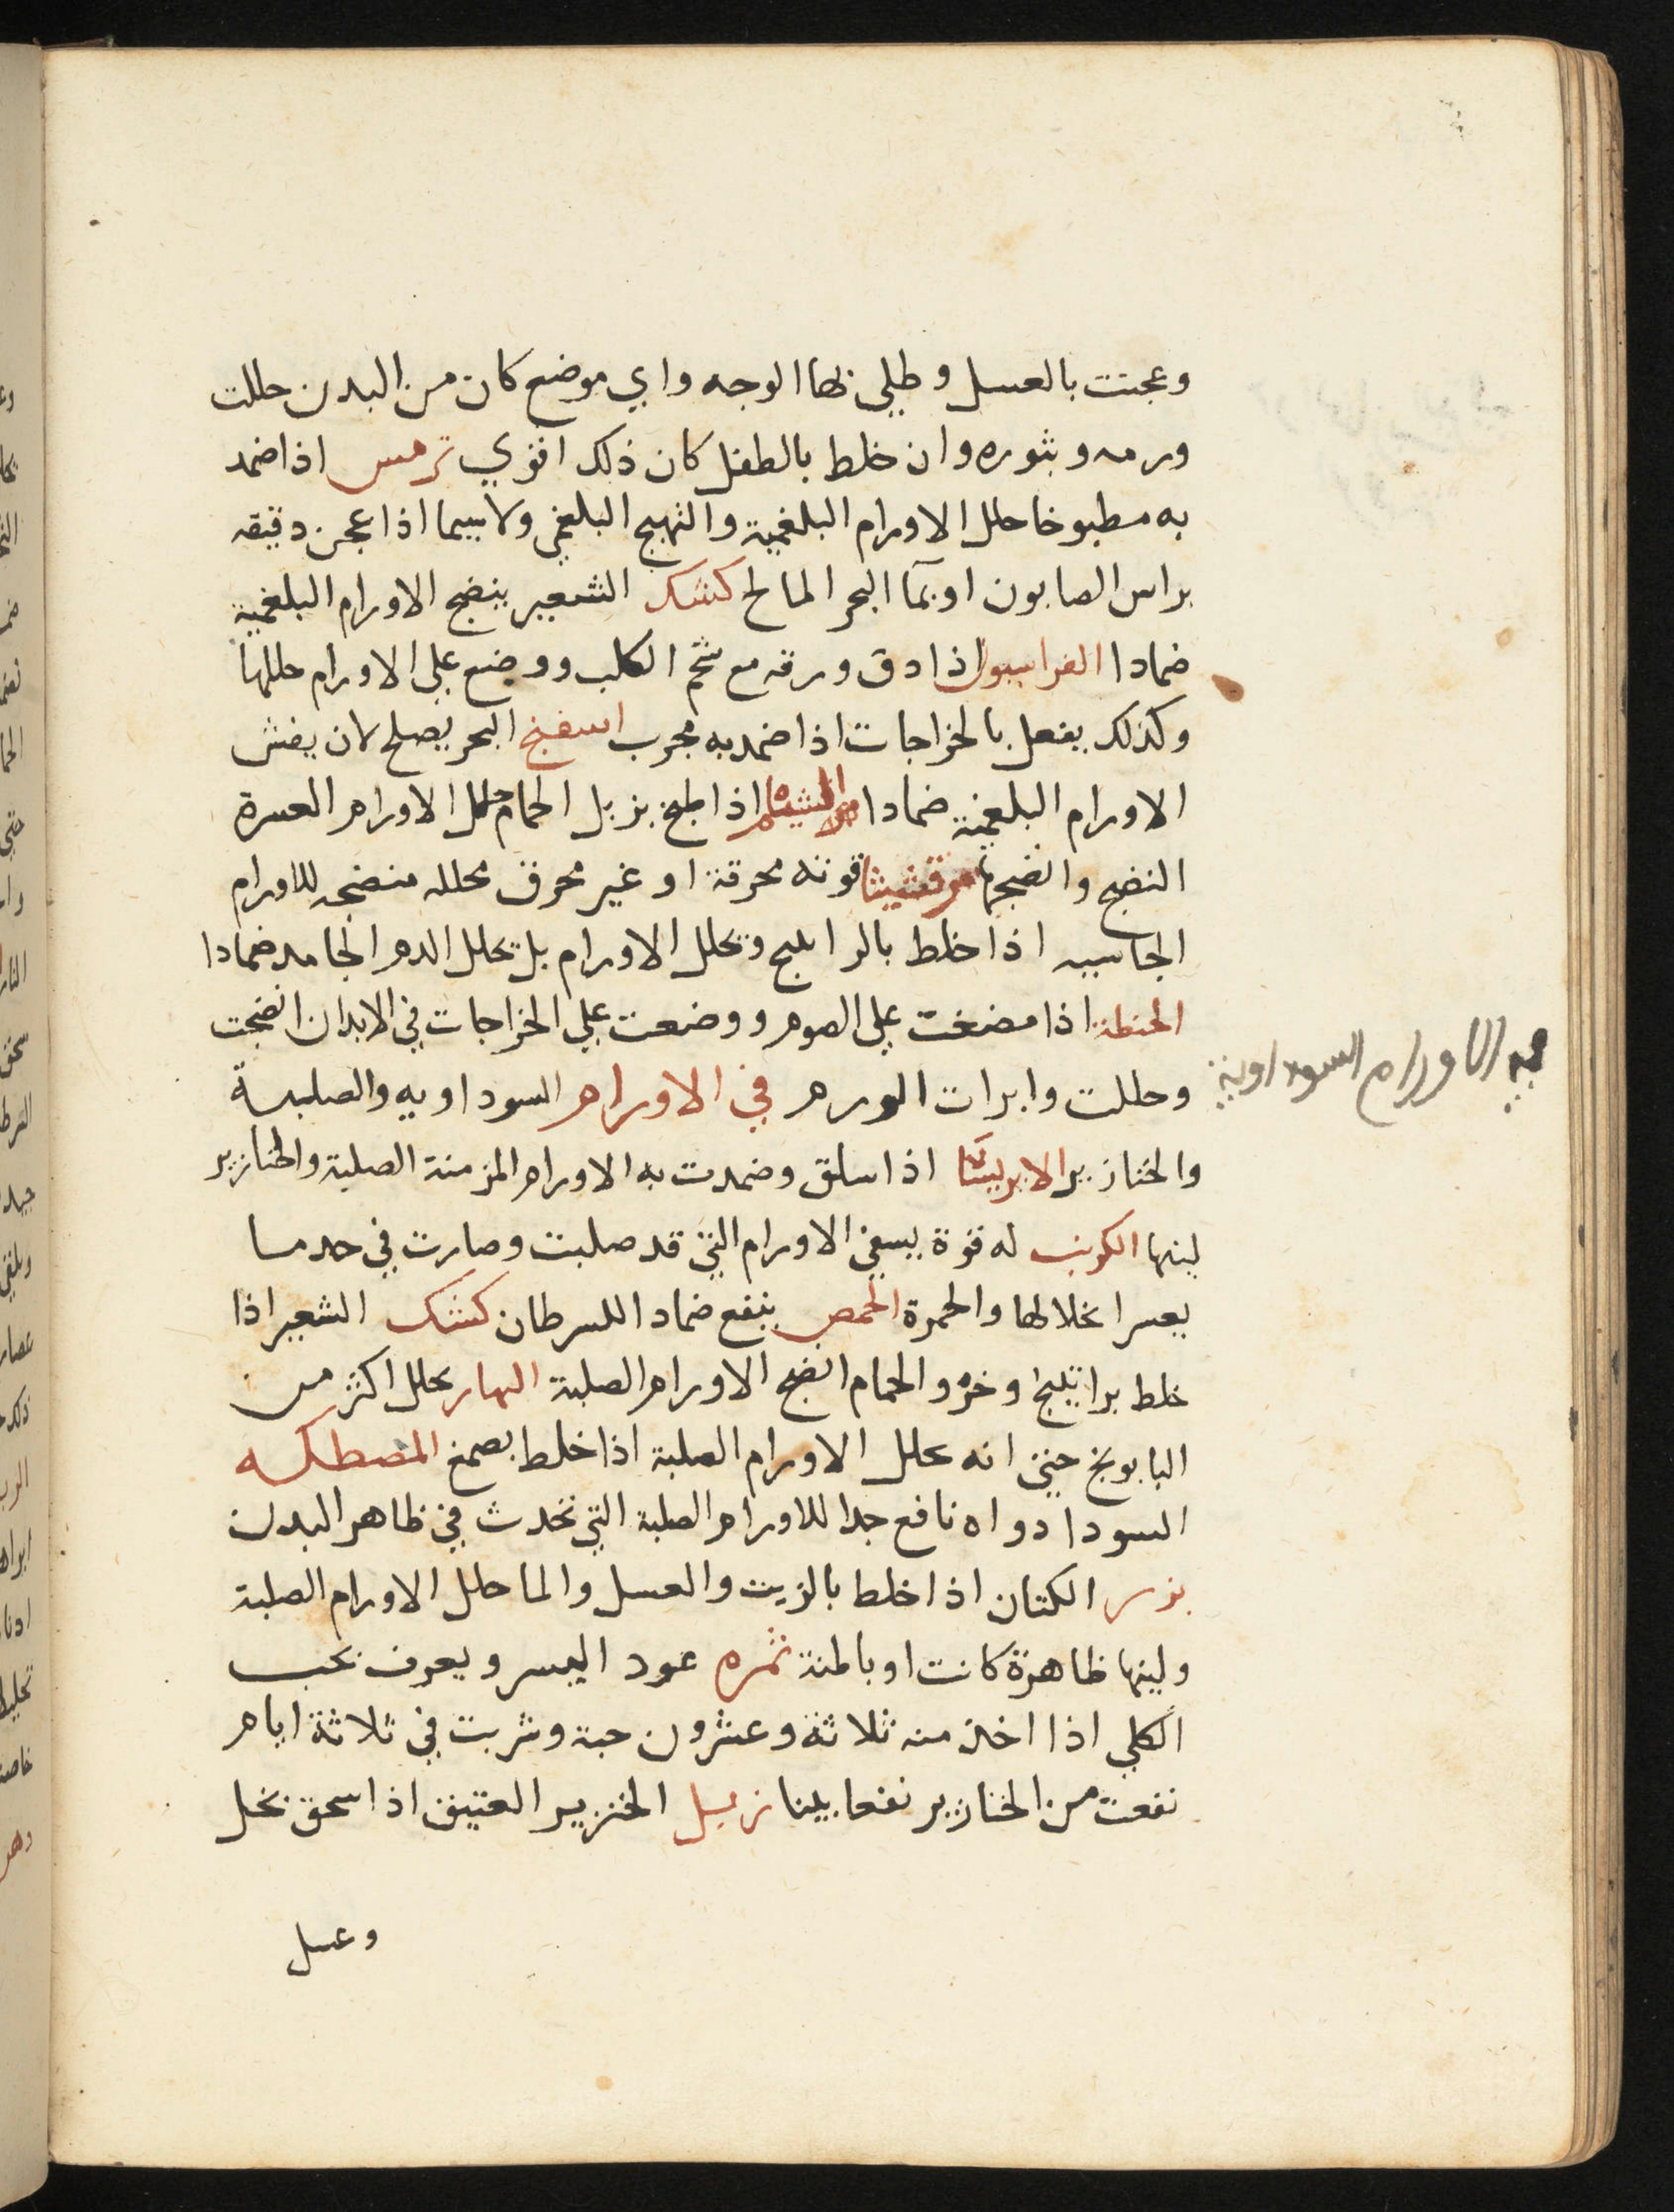 وعجنت بالعسل وطلي بها الوجه واي موضع كان من البدن حللت
ورمه وبثوره وان خلط بالطفل كان ذلك اقوي ترمس اذا ضمد
به مطبوخا حلل الاورام البلغمية والتهيج البلغمي ولاسيما اذا عجن دقيقه
براس الصابون او بمآ البحر المالح كشك الشعير ينضج الاورام البلغمية
ضمادا الفراسيون اذا دق ورقه مع شحم الكلب ووضع علي الاورام حللها
وكذلك يفعل بالخراجات اذا ضمد به مجرب اسفنج البحر يصلح لان يفش
الاورام البلغمية ضمادا الشيلم اذا طبخ بزبل الحمام حلل الاورام العسرة
النضج وانضجها مرقشيثا قوته محرقة او غير محرق محلله منضجه للاورام
الجاسيه اذا خلط بالراتينج وتحلل الاورام بل تحلل الدم الجامد ضمادا
الحنطة اذا مضغت علي الصوم ووضعت علي الخراجات في الابدان انضجت
وحللت وابرات الورم في الاورام السوداويه والصلبة
في الاورام السوداوية
والخنازير الابريسا اذا سلق وضمدت به الاورام المزمنة الصلبة والخنازير
لينها الكرنب له قوة يسفي الاورام التي قد صلبت وصارت في حد ما
يعسر انحلالها والحمرة الحمص ينفع ضمادا للسرطان كشك الشعير اذا
خلط براتينج وخرو الحمام انضج الاورام الصلبة البهار يحلل اكثر من
البابونج حتي انه يحلل الاورام الصلبة اذا خلط بصمغ المصطكه
السودا دواه نافع جدا للاورام الصلبة التي تحدث في ظاهر البدن
بزر الكتان اذا خلط بالزيت والعسل والما حلل الاورام الصلبة
ولينها ظاهرة كانت او باطنة ثمره عود اليسر ويعرف بحب
الكلي اذا اخذ منه ثلاثة وعشرون حبة وشربت في ثلاثة ايام
نفعت من الخنازير نفعا بينا زبل الخنزير العتيق اذا سحق بخل
وعسل